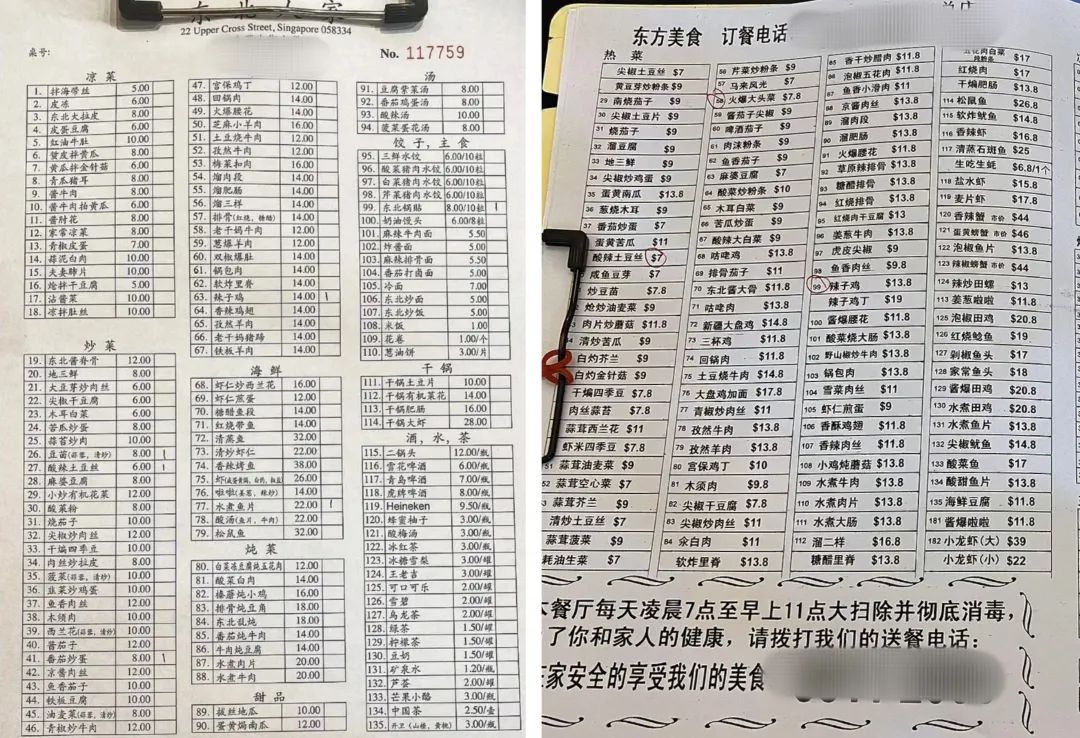 东北人家
22 Upper Cross Street, Singapore 058334
桌号:
No. 117759
凉 菜
1. 拌海带丝 5.00
2. 皮冻 6.00
3. 东北大拉皮 8.00
4. 皮蛋豆腐 6.00
5. 红油牛肚 10.00
6. 蜇皮拌黄瓜 8.00
7. 黄瓜拌金针菇 6.00
8. 青瓜猪耳 8.00
9. 酱牛肉 10.00
10. 酱牛肉拍黄瓜 8.00
11. 酱肘花 8.00
12. 家常凉菜 8.00
13. 青椒皮蛋 7.00
14. 蒜泥白肉 10.00
15. 夫妻肺片 10.00
16. 炝拌干豆腐 8.00
17. 沾酱菜 10.00
18. 凉拌肚丝 10.00
炒 菜
19. 东北酱脊骨 12.00
20. 地三鲜 8.00
21. 大豆芽炒肉丝 6.00
22. 尖椒干豆腐 8.00
23. 木耳白菜 8.00
24. 苦瓜炒蛋 8.00
25. 蒜苔炒肉 10.00
26. 豆苗(蒜蓉,清炒) 8.00
27. 酸辣土豆丝 6.00
28. 麻婆豆腐 8.00
29. 小炒有机花菜 12.00
30. 酸菜粉 8.00
31. 烧茄子 8.00
32. 尖椒炒肉丝 12.00
33. 干煸四季豆 10.00
34. 肉丝炒拉皮 8.00
35. 菠菜(蒜蓉,清炒) 10.00
36. 韭菜炒鸡蛋 10.00
37. 鱼香肉丝 12.00
38. 木须肉 10.00
39. 西兰花(蒜蓉,清炒) 10.00
40. 酱茄子 12.00
41. 番茄炒蛋 8.00
42. 京酱肉丝 12.00
43. 鱼香茄子 10.00
44. 铁板豆腐 10.00
45. 油麦菜(蒜蓉,清炒) 8.00
46. 青椒炒牛肉 12.00
47. 宫保鸡丁 12.00
48. 回锅肉 14.00
49. 火爆腰花 14.00
50. 芝麻小羊肉 16.00
51. 土豆烧牛肉 12.00
52. 孜然牛肉 12.00
53. 梅菜扣肉 16.00
54. 熘肉段 14.00
55. 熘肥肠 14.00
56. 熘三样 14.00
57. 排骨(红烧,糖醋) 14.00
58. 老干妈牛肉 12.00
59. 葱爆羊肉 12.00
60. 双椒爆肚 14.00
61. 锅包肉 14.00
62. 软炸里脊 14.00
63. 辣子鸡 14.00
64. 香辣鸡翅 14.00
65. 孜然羊肉 14.00
66. 老干妈猪蹄 14.00
67. 铁板羊肉 14.00
海 鲜
68. 虾仁炒西兰花 16.00
69. 虾仁煎蛋 12.00
70. 糖醋鱼段 14.00
71. 红烧带鱼 14.00
72. 清蒸鱼 32.00
73. 清炒虾仁 22.00
74. 香辣烤鱼 38.00
75. 虾(咸蛋黄焗,白灼,椒盐) 26.00
76. 啦啦(姜葱,辣炒) 14.00
77. 水煮鱼片 22.00
78. 酸汤(鱼片,牛肉) 22.00
79. 松鼠鱼 32.00
炖 菜
80. 白菜冻豆腐炖五花肉 12.00
81. 酸菜白肉 14.00
82. 榛蘑炖小鸡 16.00
83. 排骨炖豆角 18.00
84. 东北乱炖 18.00
85. 番茄炖牛肉 14.00
86. 牛肉炖豆腐 14.00
87. 水煮肉片 20.00
88. 水煮牛肉 20.00
甜 品
89. 拔丝地瓜 10.00
90. 蛋黄焗南瓜 12.00
汤
91. 豆腐紫菜汤 8.00
92. 番茄鸡蛋汤 8.00
93. 酸辣汤 10.00
94. 菠菜蛋花汤 8.00
饺 子,主 食
95. 三鲜水饺 6.00/10粒
96. 酸菜猪肉水饺 6.00/10粒
97. 白菜猪肉水饺 6.00/10粒
98. 芹菜猪肉水饺 6.00/10粒
99. 东北锅贴 8.00/10粒
100. 奶油馒头 6.00/8粒
101. 麻辣牛肉面 5.50
102. 炸酱面 5.00
103. 麻辣排骨面 5.50
104. 番茄打卤面 5.00
105. 冷面 7.00
106. 东北炒面 5.00
107. 东北炒饭 5.00
108. 米饭 1.00
109. 花卷 1.00/个
110. 葱油饼 3.00/片
干 锅
111. 干锅土豆片 10.00
112. 干锅有机菜花 14.00
113. 干锅肥肠 16.00
114. 干锅大虾 28.00
酒,水,茶
115. 二锅头 12.00/瓶
116. 雪花啤酒 6.00/瓶
117. 青岛啤酒 7.00/瓶
118. 虎牌啤酒 8.00/瓶
119. Heineken 9.50/瓶
120. 蜂蜜柚子 3.00/瓶
121. 酸梅汤 3.00/瓶
122. 冰红茶 3.00/瓶
123. 冰糖雪梨 3.00/瓶
124. 王老吉 3.00/罐
125. 可口可乐 2.00/罐
126. 雪碧 2.00/罐
127. 乌龙茶 2.00/罐
128. 绿茶 1.50/罐
129. 柠檬茶 1.50/罐
130. 豆奶 1.50/罐
131. 矿泉水 1.20/瓶
132. 芦荟 2.00/罐
133. 芒果小酪 3.00/瓶
134. 中国茶 2.50/壶
135. 开卫(山楂,黄桃) 3.00/瓶
东方美食 订餐电话
热 菜
尖椒土豆丝 $7
黄豆芽炒粉条 $9
29 南烧茄子 $9
30 尖椒土豆片 $9
31 烧茄子 $9
32 溜豆腐 $9
33 地三鲜 $9
34 尖椒炒鸡蛋 $9
35 蛋黄南瓜 $13.8
36 葱烧木耳 $9
37 番茄炒蛋 $7
蛋黄苦瓜 $11
酸辣土豆丝 $7
咸鱼豆芽 $7
炒豆苗 $7.8
炝炒油麦菜 $9
肉片炒蘑菇 $11.8
清炒苦瓜 $9
白灼芥兰 $9
白灼金针菇 $9
干煸四季豆 $7.8
肉丝蒜苔 $7.8
蒜茸西兰花 $11
虾米四季豆 $7.8
51 蒜茸油麦菜 $9
52 蒜茸空心菜 $7
蒜茸芥兰 $9
清炒土豆丝 $7
蒜茸菠菜 $9
耗油生菜 $7
56 芹菜炒粉条 $9
57 马来风光 $7
58 火爆大头菜 $7.8
59 酱茄子尖椒 $9
60 啤酒茄子 $9
61 肉沫粉条 $9
62 鱼香茄子 $9
63 麻婆豆腐 $7
64 酸菜炒粉条 $10
65 木耳白菜 $9
66 苦瓜炒蛋 $9
67 酸辣大白菜 $9
68 咕咾鸡 $13.8
69 排骨茄子 $11
70 东北酱大骨 $11.8
71 咕咾肉 $13.8
72 新疆大盘鸡 $14.8
73 三杯鸡 $11.8
74 回锅肉 $11.8
75 土豆烧牛肉 $14.8
76 大盘鸡加面 $17.8
77 青椒炒肉丝 $11
78 孜然牛肉 $13.8
79 孜然羊肉 $13.8
80 宫保鸡丁 $10
81 木须肉 $9.8
82 尖椒干豆腐 $7.8
83 尖椒炒肉丝 $11
84 汆白肉 $11
软炸里脊 $13.8
85 香干炒腊肉 $11.8
86 泡椒五花肉 $11.8
87 鱼香小滑肉 $11
88 京酱肉丝 $13.8
89 溜肉段 $13.8
90 溜肥肠 $13.8
91 火爆腰花 $11.8
92 草原辣排骨 $13.8
93 糖醋排骨 $13.8
94 红烧排骨 $13.8
95 红烧肉干豆腐 $13
96 姜葱牛肉 $13.8
97 虎皮尖椒 $9
98 鱼香肉丝 $9.8
99 辣子鸡 $13.8
辣子鸡丁 $19
100 酱爆腰花 $11.8
101 酸菜烧大肠 $13.8
102 野山椒炒牛肉 $13.8
103 锅包肉 $13.8
104 雪菜肉丝 $11
105 虾仁煎蛋 $9
106 香酥鸡翅 $11.8
107 香辣肉丝 $11
108 小鸡炖蘑菇 $13.8
109 水煮牛肉 $13.8
110 水煮肉片 $13.8
111 水煮大肠 $13.8
112 溜二样 $16.8
糖醋里脊 $13.8
五花肉白菜炖粉条 $17
红烧肉 $17
干煸肥肠 $13.8
114 松鼠鱼 $26.8
115 软炸鱿鱼 $14.8
116 香辣虾 $16.8
117 清蒸石斑鱼 $25
生吃生蚝 $6.8/1个
118 盐水虾 $15.8
119 麦片虾 $17.8
120 香辣蟹 市价 $44
121 蛋黄螃蟹 市价 $46
122 泡椒鱼片 $13.8
123 辣椒螃蟹 市价 $44
124 辣炒田螺 $13
113 姜葱啦啦 $11.8
125 泡椒田鸡 $20.8
126 红烧鲶鱼 $19
127 剁椒鱼头 $17
128 家常鱼头 $18
129 酱爆田鸡 $20.8
130 水煮田鸡 $20.8
131 水煮鱼片 $13.8
132 尖椒鱿鱼 $14.8
133 酸菜鱼 $17
134 酸甜鱼片 $13.8
135 海鲜豆腐 $11.8
181 酱爆啦啦 $11.8
182 小龙虾(大) $39
小龙虾(小) $22
本餐厅每天凌晨7点至早上11点大扫除并彻底消毒,
了你和家人的健康,请拨打我们的送餐电话:
在家安全的享受我们的美食